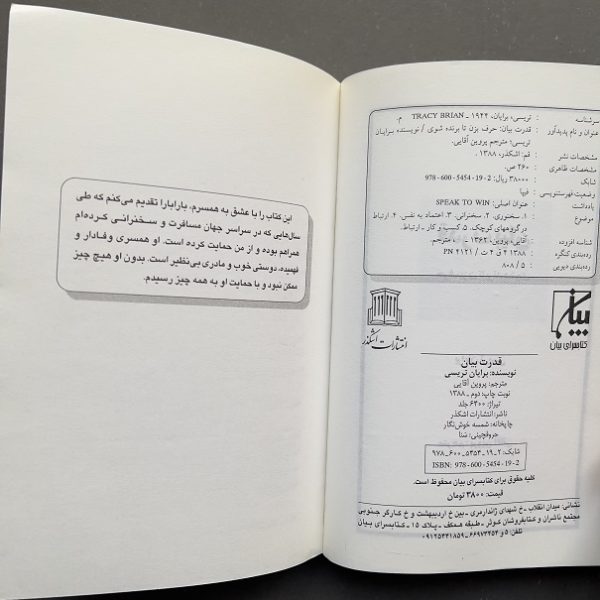 سرشناسه : تریسی، برایان، ۱۹۴۴ ـ TRACY BRIAN م.
عنوان و نام پدیدآور : قدرت بیان: حرف بزن تا برنده شوی / نویسنده برایان
تریسی؛ مترجم پروین آقایی.
مشخصات نشر : قم: اشکذر، ۱۳۸۸.
مشخصات ظاهری : ۲۶۰ ص.
شابک : ۳۸۰۰۰ ریال: 2-19-5454-600-978
وضعیت فهرست‌نویسی : فیپا
یادداشت : عنوان اصلی: SPEAK TO WIN
موضوع : ۱. سخنوری. ۲. سخنرانی. ۳. اعتماد به نفس. ۴. ارتباط
در گروههای کوچک. ۵. کسب و کار ـ ارتباط.
شناسه افزوده : آقایی، پروین، ۱۳۶۲ ـ ، مترجم.
رده‌بندی کنگره : ۱۳۸۸ ۴ ق ۴ ت / PN ۴۱۲۱
رده‌بندی دیویی : ۸۰۸ / ۵
انتشارات اشکذر
بیان
کتابسرای بیان
قدرت بیان
نویسنده: برایان تریسی
مترجم: پروین آقایی
نوبت چاپ: دوم ـ ۱۳۸۸
تیراژ: ۶۴۰۰ جلد
ناشر: انتشارات اشکذر
چاپخانه: شمسه خوش‌نگار
حروفچینی: شنا
شابک: ۲ـ۱۹ـ۵۴۵۴ـ۶۰۰ـ۹۷۸
ISBN: 978-600-5454-19-2
کلیه حقوق برای کتابسرای بیان محفوظ است.
قیمت: ۳۸۰۰ تومان
نشانی: میدان انقلاب ـ خ شهدای ژاندارمری ـ بین خ اردیبهشت و خ کارگر جنوبی
مجتمع ناشران و کتابفروشان کوثر ـ طبقه همکف ـ پلاک ۱۵ ـ کتابسرای بیان
تلفن: ۵ و ۶۶۹۷۳۴۵۴ ـ ۰۹۱۲۵۳۳۱۸۵۹
این کتاب را با عشق به همسرم، باربارا تقدیم می‌کنم که طی
سال‌هایی که در سراسر جهان مسافرت و سخنرانی کرده‌ام
همراهم بوده و از من حمایت کرده است. او همسری وفادار و
فهمیده، دوستی خوب و مادری بی‌نظیر است. بدون او هیچ چیز
ممکن نبود و با حمایت او به همه چیز رسیدم.